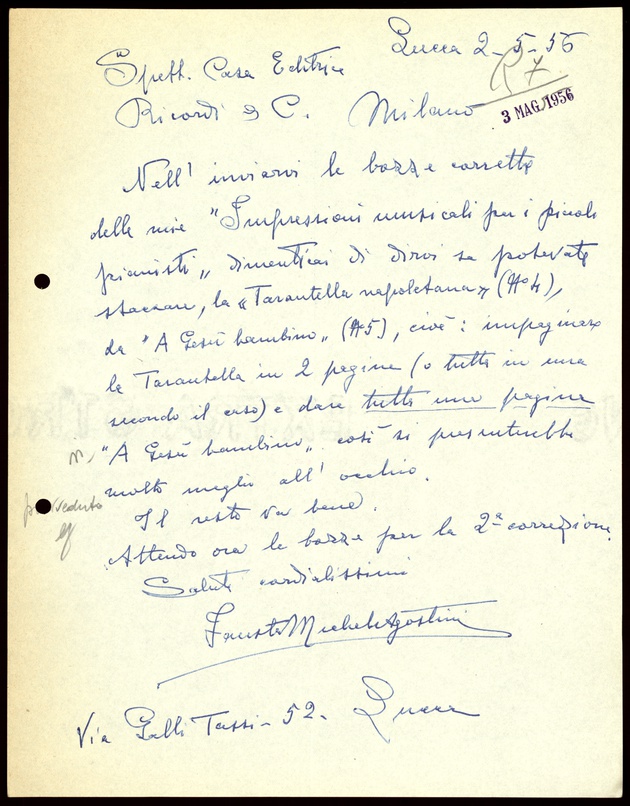 Lucca 2-5-56
Spett. Casa Editrice
R 7
Ricordi e C. Milano
3 MAG. 1956
Nell' inviarvi le bozze corrette
delle mie "Impressioni musicali per i piccoli
pianisti„ dimenticai di dirvi se potevate
staccare, la "Tarantella napoletana„ (N°4),
da "A Gesù bambino„ (N°5), cioè: impaginare
la Tarantella in 2 pagine (o tutta in una
secondo il caso) e dare tutta una pagina
"A Gesù bambino„ così si presenterebbe
molto meglio all' occhio.
provveduto
Il resto va bene.
Attendo ora le bozze per la 2ª correzione.
Saluti cordialissimi
Fausto Michele Agostini
Via Galli Tassi - 52 - Lucca